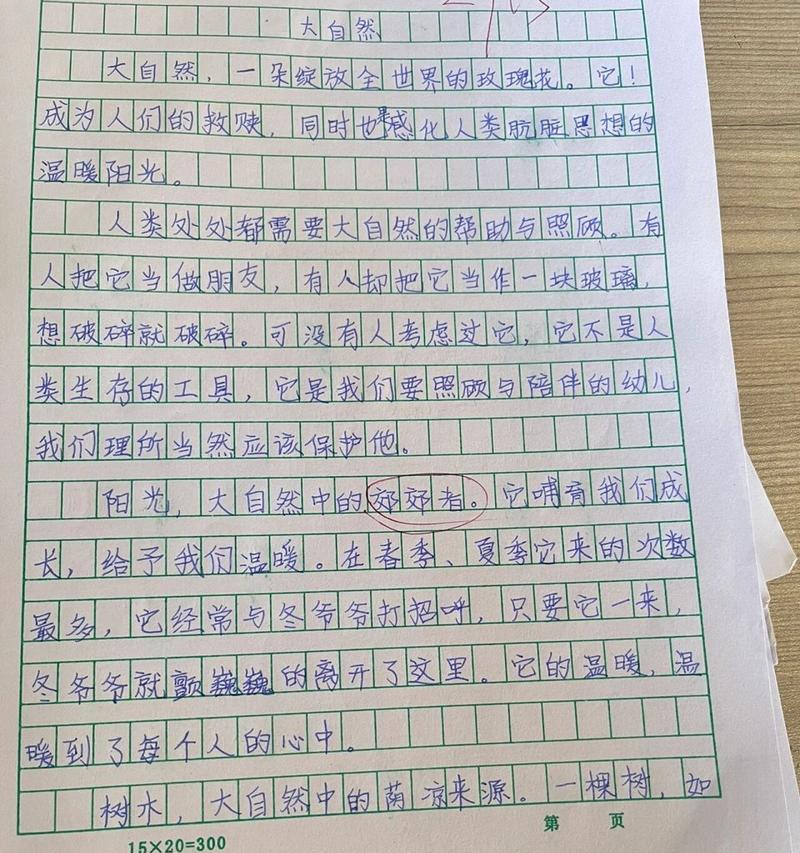 大自然
大自然，一朵绽放全世界的玫瑰花。它！
成为人们的救赎，同时也是感化人类肮脏思想的
温暖阳光。
人类处处都需要大自然的帮助与照顾。有
人把它当做朋友，有人却把它当作一块玻璃，
想破碎就破碎。可没有人考虑过它，它不是人
类生存的工具，它是我们要照顾与陪伴的幼儿，
我们理所当然应该保护他。
阳光，大自然中的郊郊者。它哺育我们成
长，给予我们温暖。在春季、夏季它来的次数
最多，它经常与冬爷爷打招呼，只要它一来，
冬爷爷就颤巍巍的离开了这里。它的温暖，温
暖到了每个人的心中。
树木，大自然中的荫凉来源。一棵树，如
15×20=300 第 页